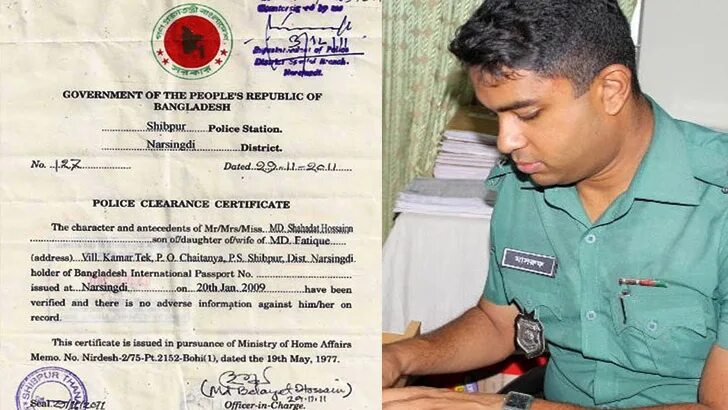 গণপ্রজাতন্ত্রী বাংলাদেশ
সরকার
Countersigned by me
3/12/11
Superintendent of Police
District Special Branch
Narsingdi.
GOVERNMENT OF THE PEOPLE'S REPUBLIC OF
BANGLADESH
Shibpur Police Station.
Narsingdi District.
No. 127 Dated 29-11-2011
POLICE CLEARANCE CERTIFICATE
The character and antecedents of Mr/Mrs/Miss. MD. Shahadat Hossainn
son of/daughter of/wife of MD. Fatique
(address) Vill. Kamar Tek, P. O. Chaitanya, P.S. Shibpur, Dist. Narsingdi
holder of Bangladesh International Passport No.
issued at Narsingdi on 20th Jan. 2009 have been
verified and there is no adverse information against him/her on
record.
This certificate is issued in pursuance of Ministry of Home Affairs
Memo. No. Nirdesh-2/75-Pt.2152-Bohi(1), dated the 19th May, 1977.
SHIBPUR THANA
(Md Belayet Hossain)
29.11.11
Seal
Officer-in-Charge.